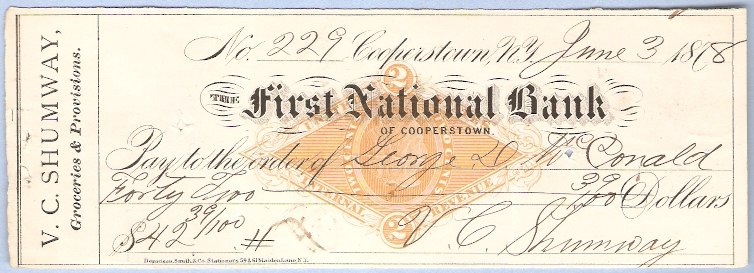 V. C. SHUMWAY,
Groceries & Provisions.
No. 229 Cooperstown, N.Y. June 3 1878
THE First National Bank
OF COOPERSTOWN.
Pay to the order of George D McDonald
Forty Two 39/100 Dollars
$42 39/100 V C Shumway
2
INTERNAL REVENUE
2